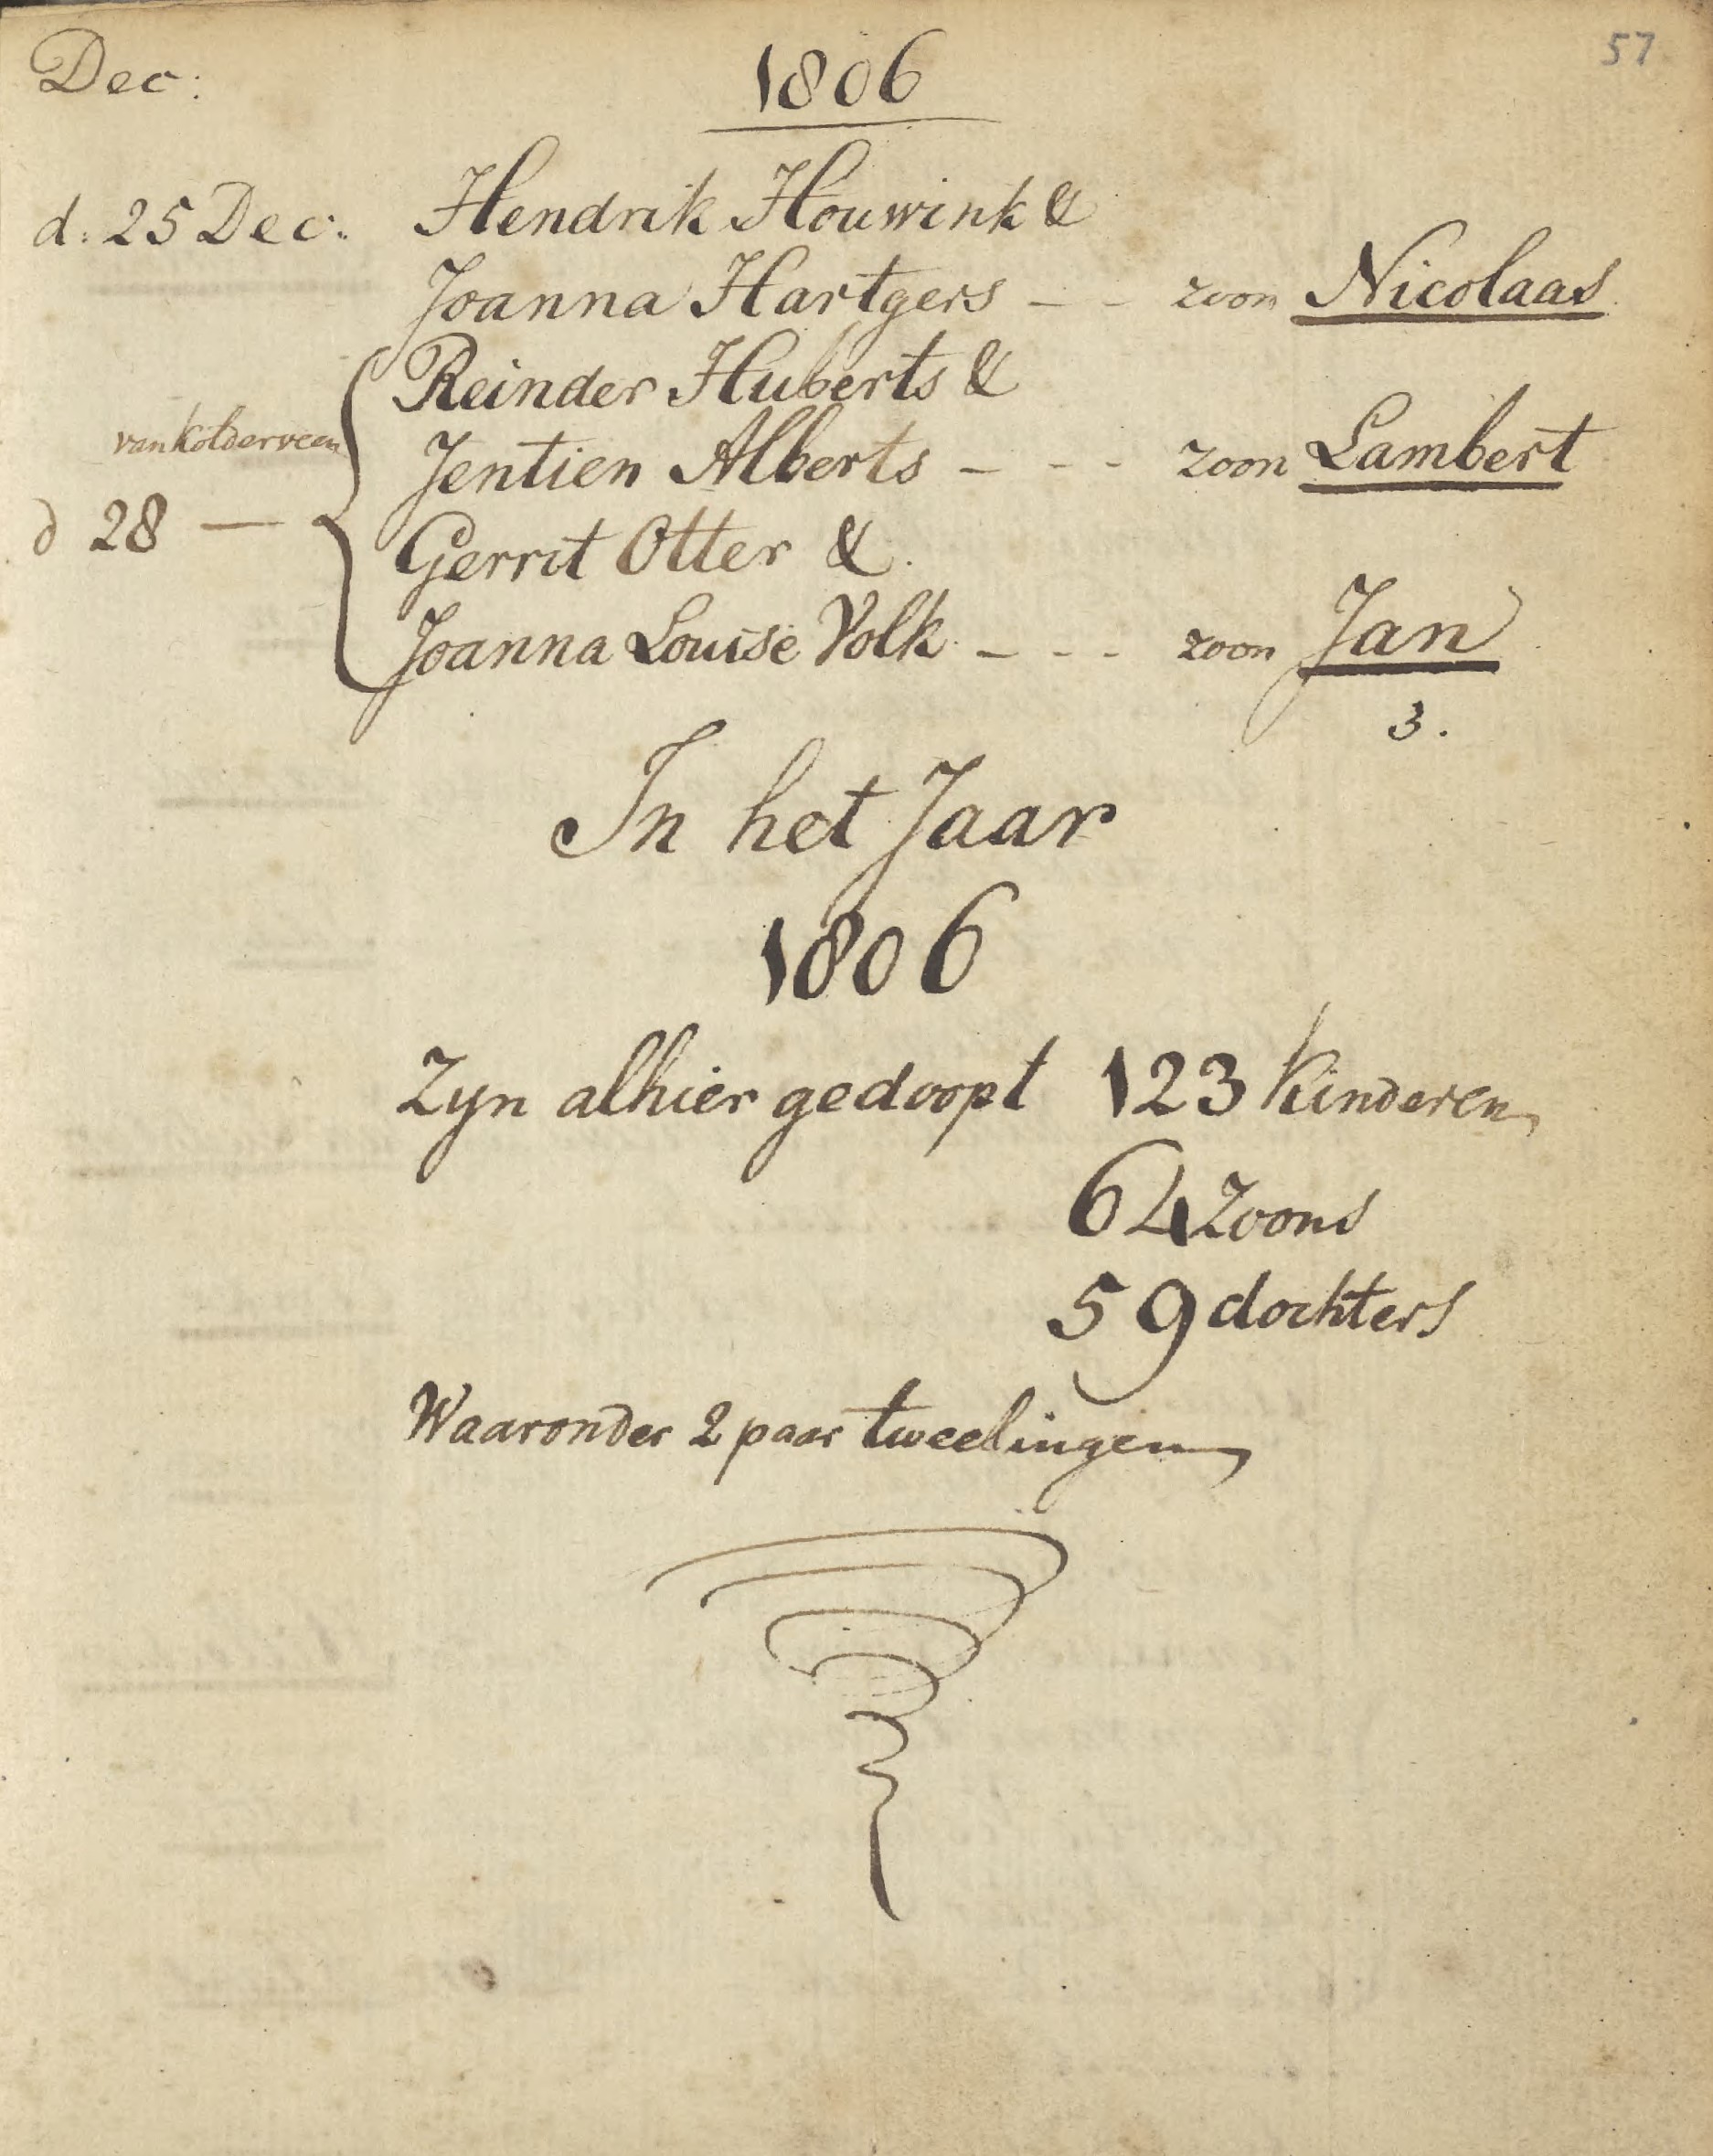 Dec: 1806 57
d. 25 Dec: Hendrik Houwink &
Joanna Hartgers - - zoon Nicolaas
Reinder Huberts &
van Kolderveen
Jentien Alberts - - - zoon Lambert
d 28 — Gerrit Otter &.
Joanna Louise Volk - - - zoon Jan
3.
In het Jaar
1806
Zyn alhier gedoopt 123 kinderen
64 Zoons
59 dochters
Waaronder 2 paar tweelingen